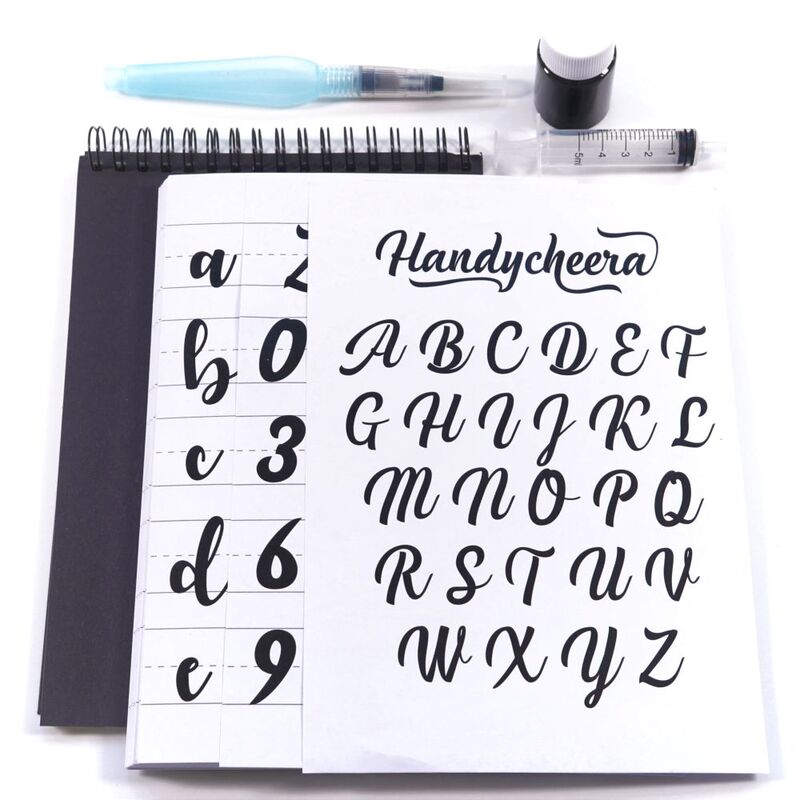 5ml 4 3 2 1
Handycheera
A B C D E F
G H I J K L
M N O P Q
R S T U V
W X Y Z
a
b
c
d
e
0
3
6
9